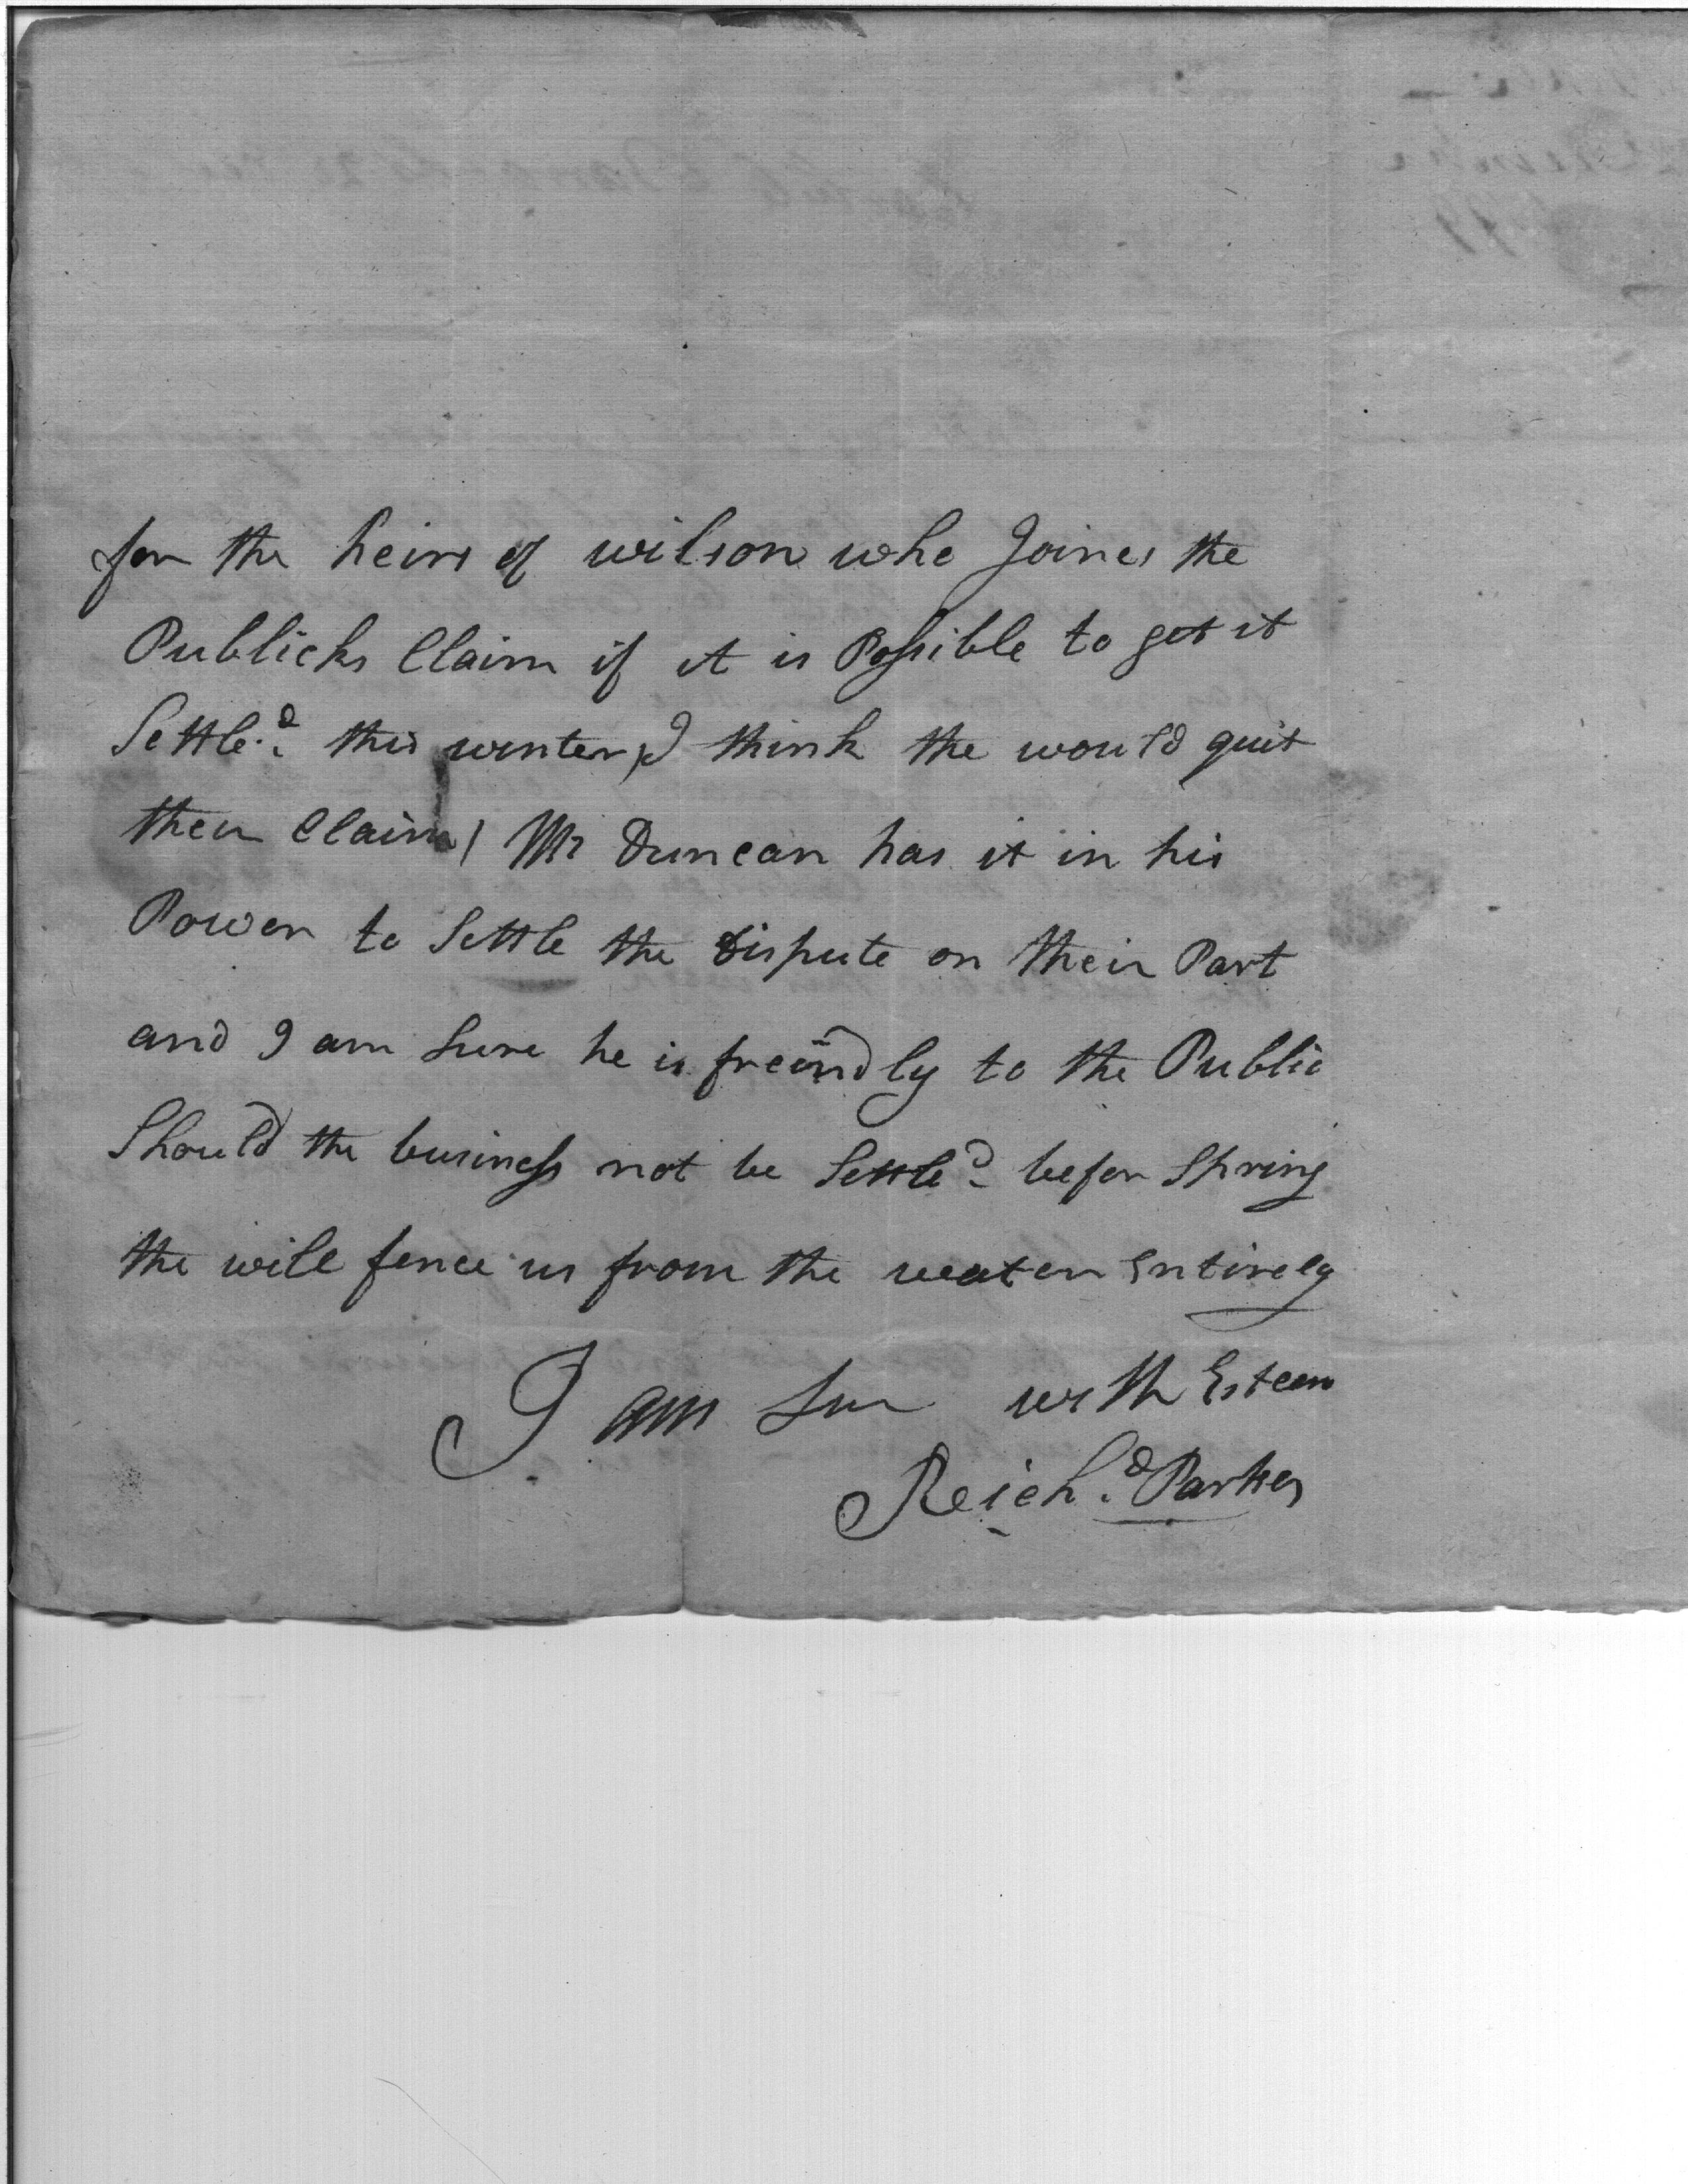 for the heirs of wilson who Joines the
Publicks Claim if it is Possible to get it
Settle.d this winter, I think the would quit
their Claim / Mr Duncan has it in his
Power to Settle the Dispute on their Part
and I am Sure he is freindly to the Public
Should the business not be Settle.d befor Spring
the will fence us from the water Entirely
I am Sir with Esteem
Reich.d Parker